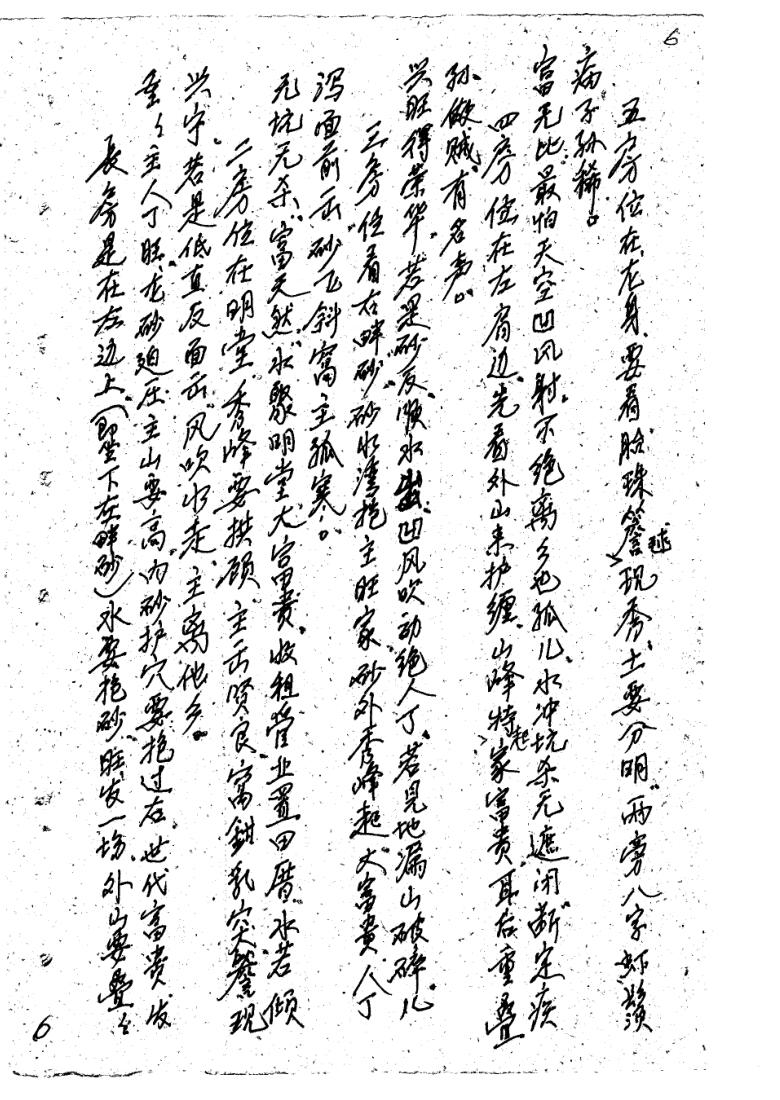 6
长房是在左边上(即坐下左畔砂)水要抱砂,旺发一场,外山要叠々
重々主人丁旺,龙砂迫压主山要高,内砂护穴要抱过右,世代富贵发
兴宁。若是低直反面出,风吹水走,主离他乡。
二房位在明堂,秀峰要拱顾,主出贤良,窝钳乳突鳌现
无坑无杀,富天然,水聚明堂大富贵,收租营业置田厝,水若倾
泻面前出,砂飞斜窝主孤寒。
三房位看右畔砂,砂水湾抱主旺家,砂外秀峰起,大富贵人丁
兴旺得荣华,若是砂反顺水出,凹风吹动绝人丁,若见地漏山破碎,儿
孙做贼有名声。
四房位在左肩边,先看外山来护缠,山峰特起家富贵,耳后重叠
富无比,最怕天空凹风射,不绝离乡也孤儿,水冲坑杀无遮闭,断定疾
病子孙稀。
五房位在龙身,要看胎珠毬詹现秀,土要分明,两旁八字虾须
6